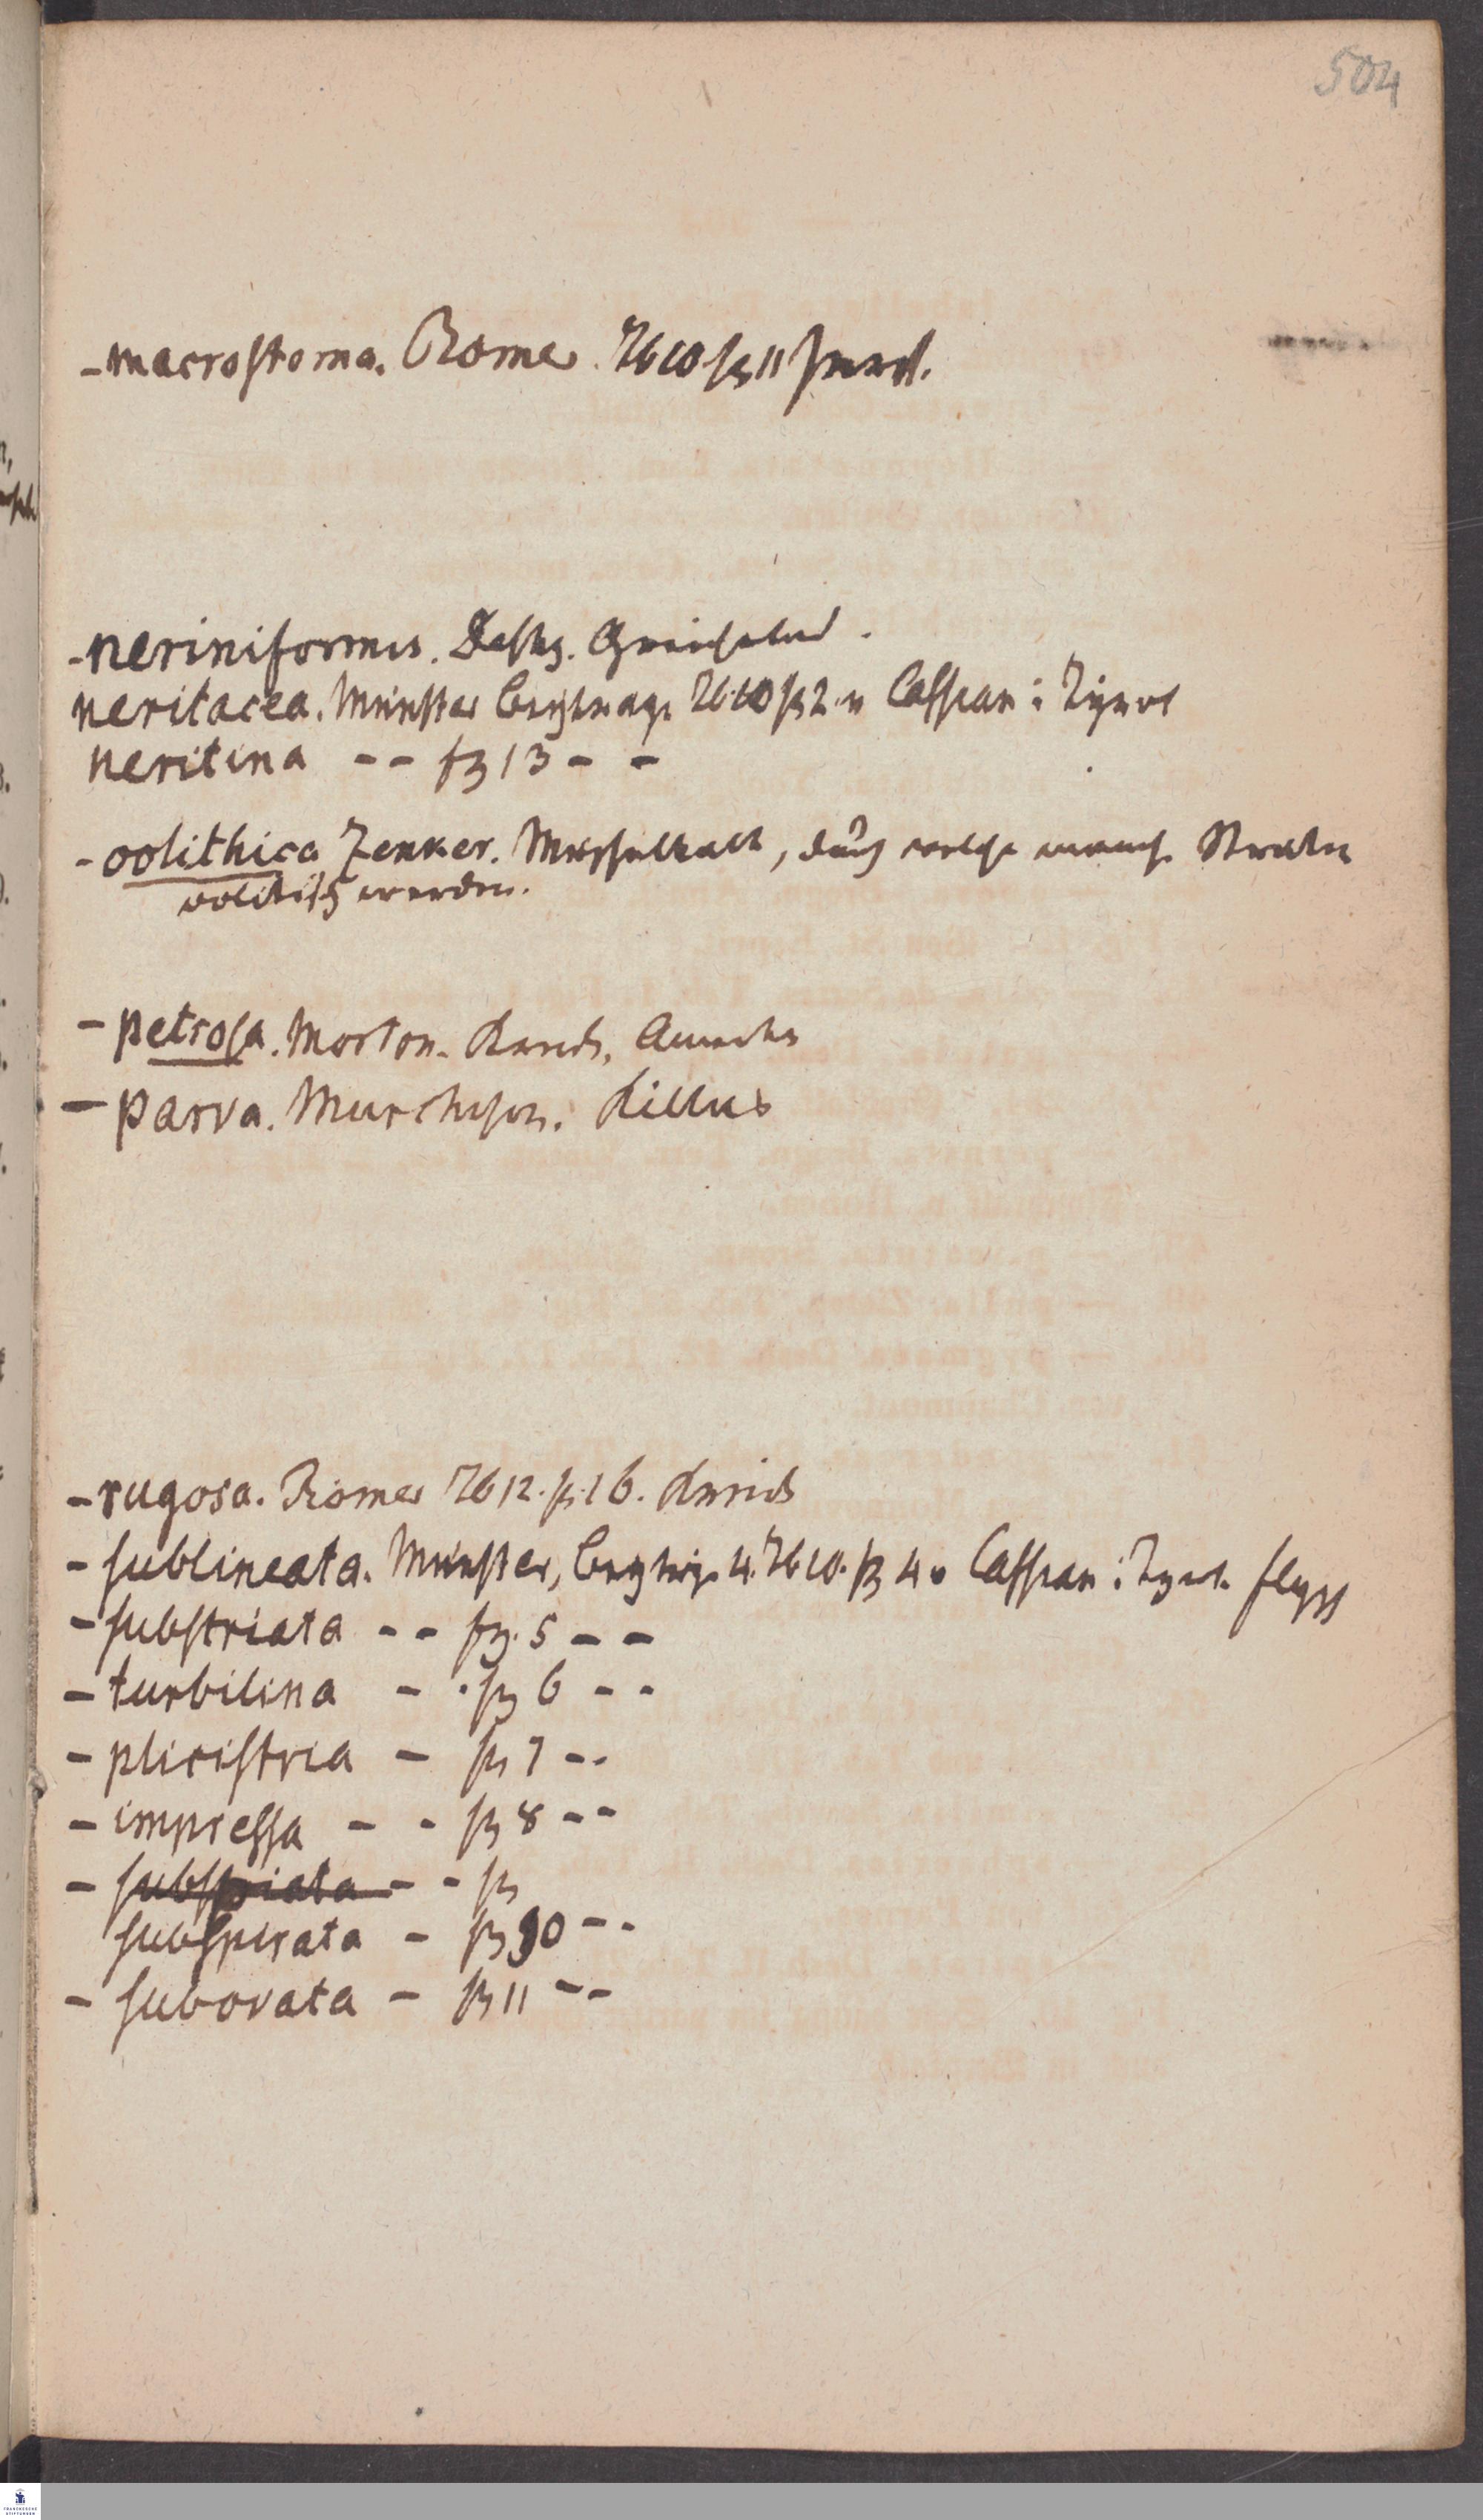 504
- macrostoma. Römer. Tb 10. fg 11
- neriniformis. Desh. Griechenland.
neritacea. Münster Beyträge Tb. 10 fg 2. v Cassian i Tyrol
neritina -- fg 13 - -
- oolithica Zenker. Muschelkalk, durch welche manche Straten
oolithisch werden.
- petrosa. Morton. Kreide, America
- parva. Murchison. Sillur
- rugosa. Römer Tb 12. fg. 16. Kreide
- sublineata. Münster, Beytrge 4. Tb 10. fg 4 v Cassian i Tyrol.
- substriata -- fg. 5 --
- turbilina - . fg 6 --
- plicistria - fg 7 --
- impressa - - fg 8 --
- - - fg
subspirata - fg 10 --
- subovata - fg 11 --